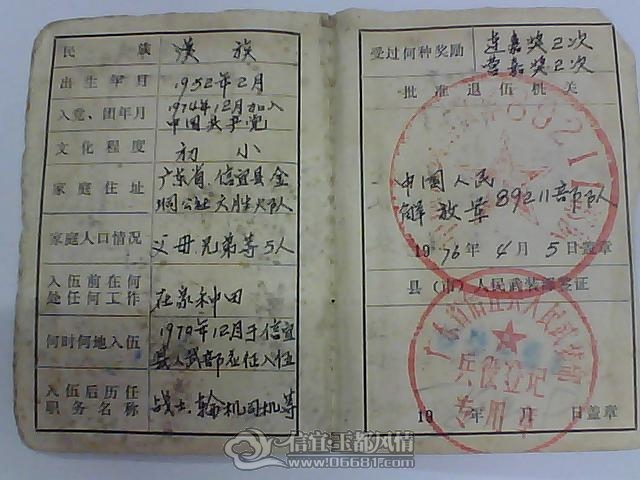 民族 汉族
出生年月 1952年2月
入党、团年月 1974年12月加入
中国共产党
文化程度 初小
家庭住址 广东省信宜县金
垌公社 大队
家庭人口情况 父母兄弟等5人
入伍前在何 在家种田
处任何工作
何时何地入伍 1970年12月于信宜
县人武部征任入伍
入伍后历任 战士、轮机司机等
职务名称
受过何种奖励 连嘉奖2次
营嘉奖2次
批准退伍机关
中国人民
解放军89211部队
1976年4月5日盖章
县(市)人民武装部签证
广东省信宜县人民武装部
兵役登记
专用章
19 年 月 日盖章
信宜·玉都风情
www.06681.com